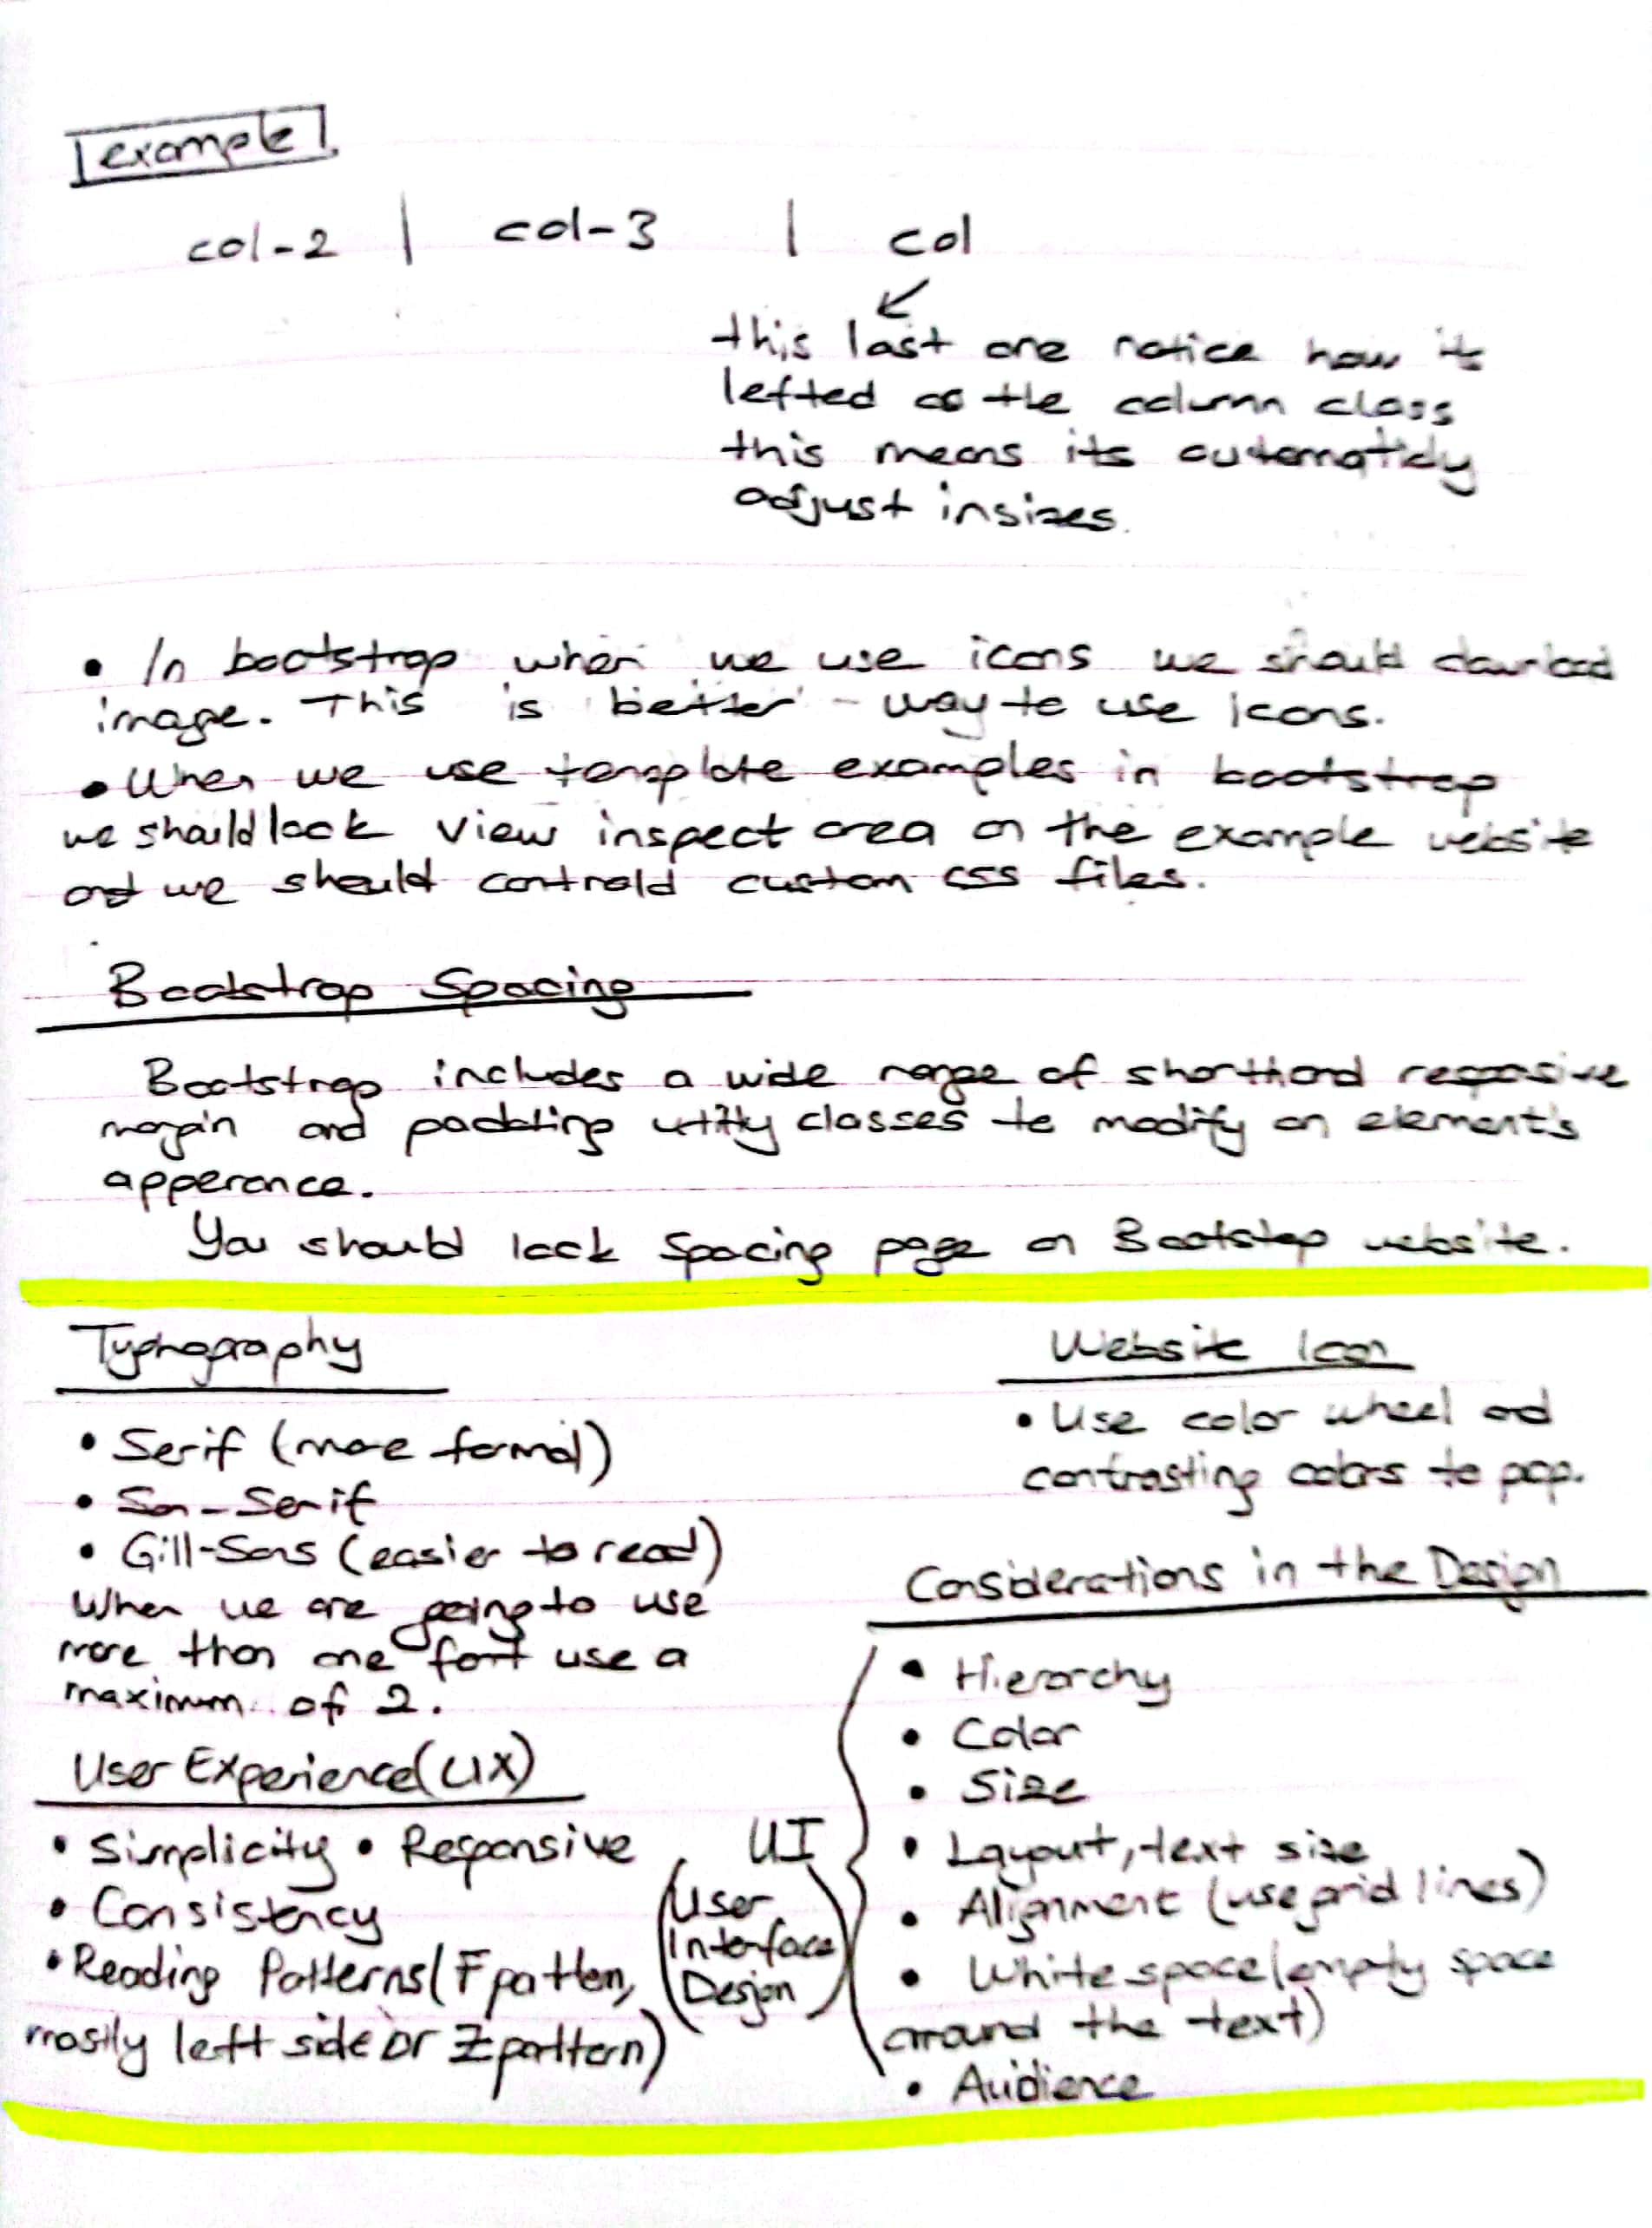 example
col-2 | col-3 | col
this last one notice how its
lefted as the column class
this means its automaticly
adjust insizes.
• In bootstrap when we use icons we should download
image. This is better way to use icons.
• When we use template examples in bootstrap
we should look view inspect area on the example website
and we should controld custom css files.
Bootstrap Spacing
Bootstrap includes a wide range of shorthand resposive
margin and padding utility classes to modify an element's
apperance.
You should look Spacing page on Bootstap website.
Typhography
• Serif (more formal)
• San-Serif
• Gill-Sans (easier to read)
When we are going to use
more than one font use a
maximum of 2.
User Experience (UX)
• Simplicity • Responsive
• Consistency
• Reading Patterns (F patten,
mostly left side or Z pattern)
Website Icon
• Use color wheel and
contrasting colors to pop.
Considerations in the Design
UI
(User
Interface
Design)
• Hierarchy
• Color
• Size
• Layout, text size
• Alignment (use grid lines)
• White space (empty space
arround the text)
• Audience